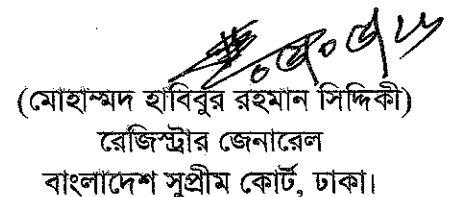 (মোহাম্মদ হাবিবুর রহমান সিদ্দিকী)
রেজিস্ট্রার জেনারেল
বাংলাদেশ সুপ্রীম কোর্ট, ঢাকা।